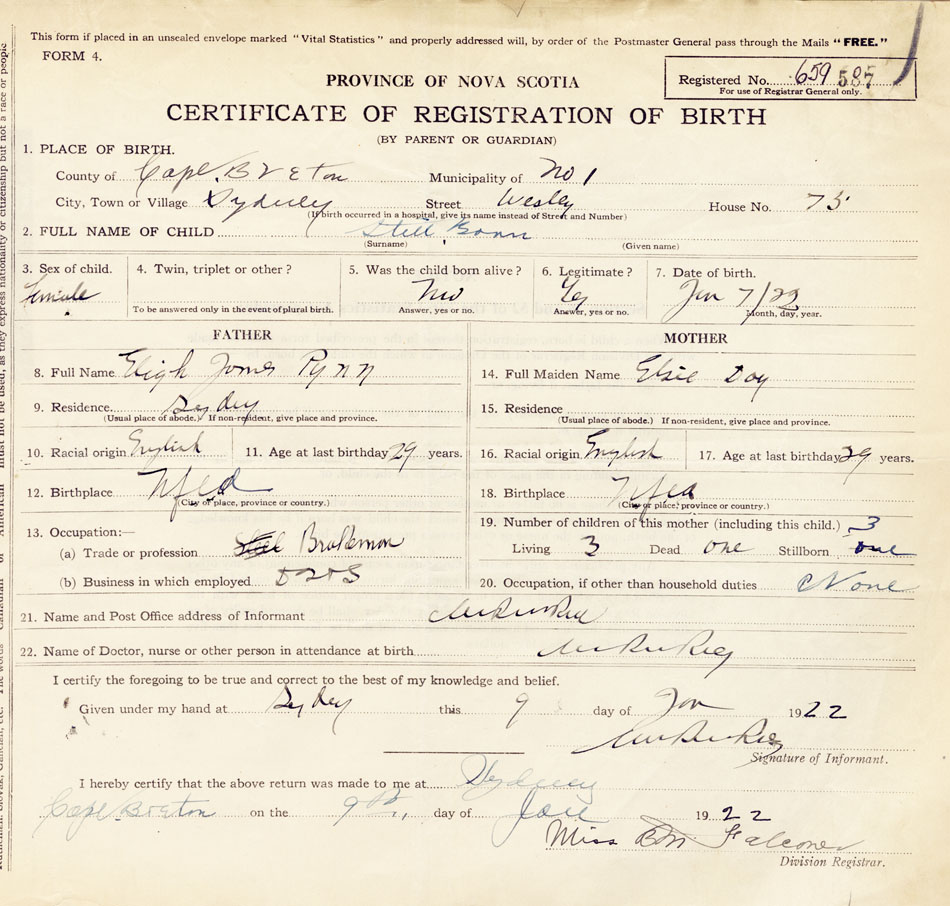 This form if placed in an unsealed envelope marked "Vital Statistics" and properly addressed will, by order of the Postmaster General pass through the Mails "FREE."
FORM 4.
PROVINCE OF NOVA SCOTIA
Registered No. 659 587
For use of Registrar General only.
CERTIFICATE OF REGISTRATION OF BIRTH
(BY PARENT OR GUARDIAN)
1. PLACE OF BIRTH.
County of Cape Breton Municipality of No 1
City, Town or Village Sydney Street Wesley House No. 75
(If birth occurred in a hospital, give its name instead of Street and Number)
2. FULL NAME OF CHILD Still Born
(Surname) (Given name)
3. Sex of child. 4. Twin, triplet or other? 5. Was the child born alive? 6. Legitimate? 7. Date of birth.
Female No Yes Jan 7/22
To be answered only in the event of plural birth. Answer, yes or no. Answer, yes or no. Month, day, year.
FATHER MOTHER
8. Full Name Eligh James Pynn 14. Full Maiden Name Elsie Day
9. Residence Sydney 15. Residence
(Usual place of abode.) If non-resident, give place and province. (Usual place of abode.) If non-resident, give place and province.
10. Racial origin English 11. Age at last birthday 29 years. 16. Racial origin English 17. Age at last birthday 29 years.
12. Birthplace Nfld 18. Birthplace Nfld
(City or place, province or country.) (City or place, province or country.)
13. Occupation:— 19. Number of children of this mother (including this child.) 3
(a) Trade or profession Brakeman Living 3 Dead one Stillborn one
(b) Business in which employed 20. Occupation, if other than household duties None
21. Name and Post Office address of Informant
22. Name of Doctor, nurse or other person in attendance at birth
I certify the foregoing to be true and correct to the best of my knowledge and belief.
Given under my hand at Sydney this 9 day of Jan 1922
Signature of Informant.
I hereby certify that the above return was made to me at Sydney
Cape Breton on the 9th, day of Jan 1922
Miss Falconer
Division Registrar.
must not be used, as they express nationality or citizenship but not a race or people